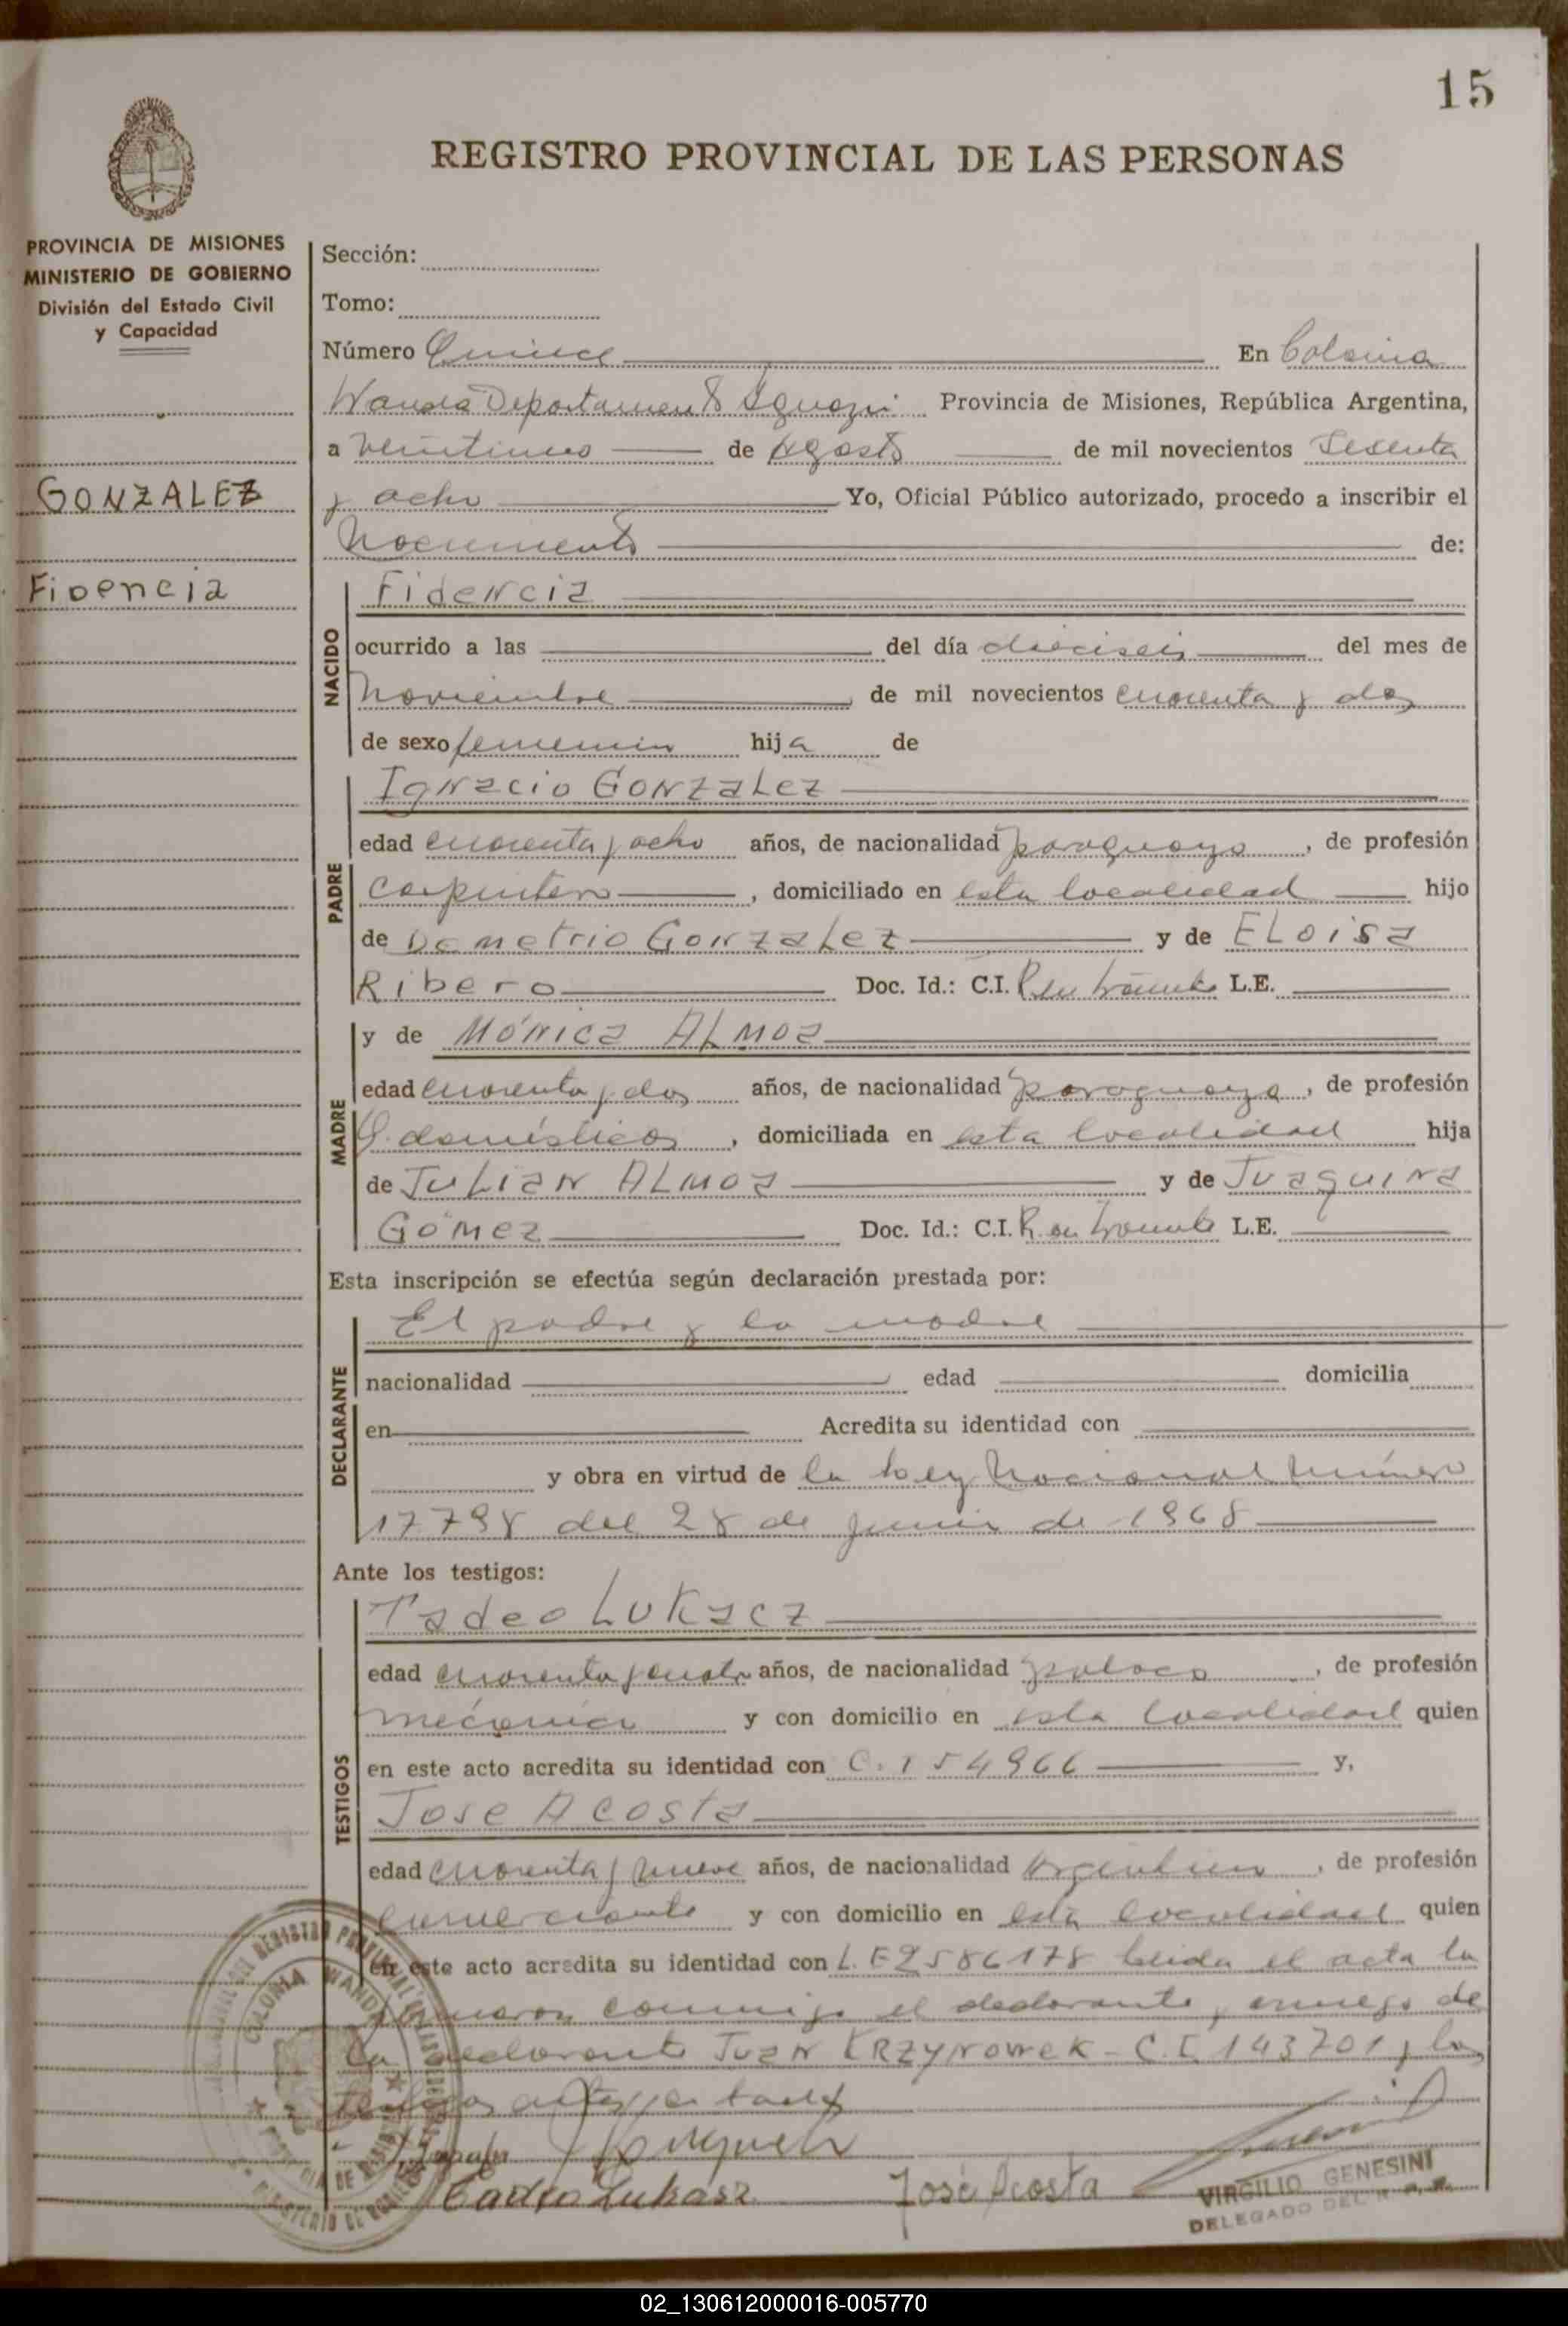 15
REGISTRO PROVINCIAL DE LAS PERSONAS
PROVINCIA DE MISIONES
MINISTERIO DE GOBIERNO
División del Estado Civil
y Capacidad
GONZALEZ
Fidencia
Sección:
Tomo:
Número Quince En Colonia
Wanda Departamento Iguazú Provincia de Misiones, República Argentina,
a veintiuno de Agosto de mil novecientos Sesenta
y ocho Yo, Oficial Público autorizado, procedo a inscribir el
Nacimiento de:
NACIDO
Fidencia
ocurrido a las del día dieciseis del mes de
Noviembre de mil novecientos cuarenta y dos
de sexo femenino hija de
PADRE
Ignacio Gonzalez
edad cuarenta y ocho años, de nacionalidad paraguayo, de profesión
Carpintero, domiciliado en esta localidad hijo
de Demetrio Gonzalez y de Eloisa
Ribero Doc. Id.: C.I. R. en trámite L.E.
MADRE
y de Mónica Almoa
edad cuarenta y dos años, de nacionalidad paraguaya, de profesión
Q. domésticos, domiciliada en esta localidad hija
de Julian Almoa y de Juaquina
Gómez Doc. Id.: C.I. R. en tramite L.E.
Esta inscripción se efectúa según declaración prestada por:
DECLARANTE
El padre y la madre
nacionalidad edad domicilia
en Acredita su identidad con
y obra en virtud de la Ley Nacional Número
17798 del 28 de junio de 1968
Ante los testigos:
TESTIGOS
Tadeo Lukacz
edad cuarenta y cuatro años, de nacionalidad polaco, de profesión
mecánico y con domicilio en esta localidad quien
en este acto acredita su identidad con C.I 54966 y,
Jose Acosta
edad cuarenta y nueve años, de nacionalidad Argentino, de profesión
comerciante y con domicilio en esta localidad quien
en este acto acredita su identidad con L.E 2586178 leida el acta la
firmaron conmigo el declarante, a ruego de
la declarante Juan Krzynowek - C.I 143701 y los
testigos
Tadeo Lukasz José Acosta
VIRGILIO GENESINI
DELEGADO DEL R.
COLONIA WANDA
02_130612000016-005770